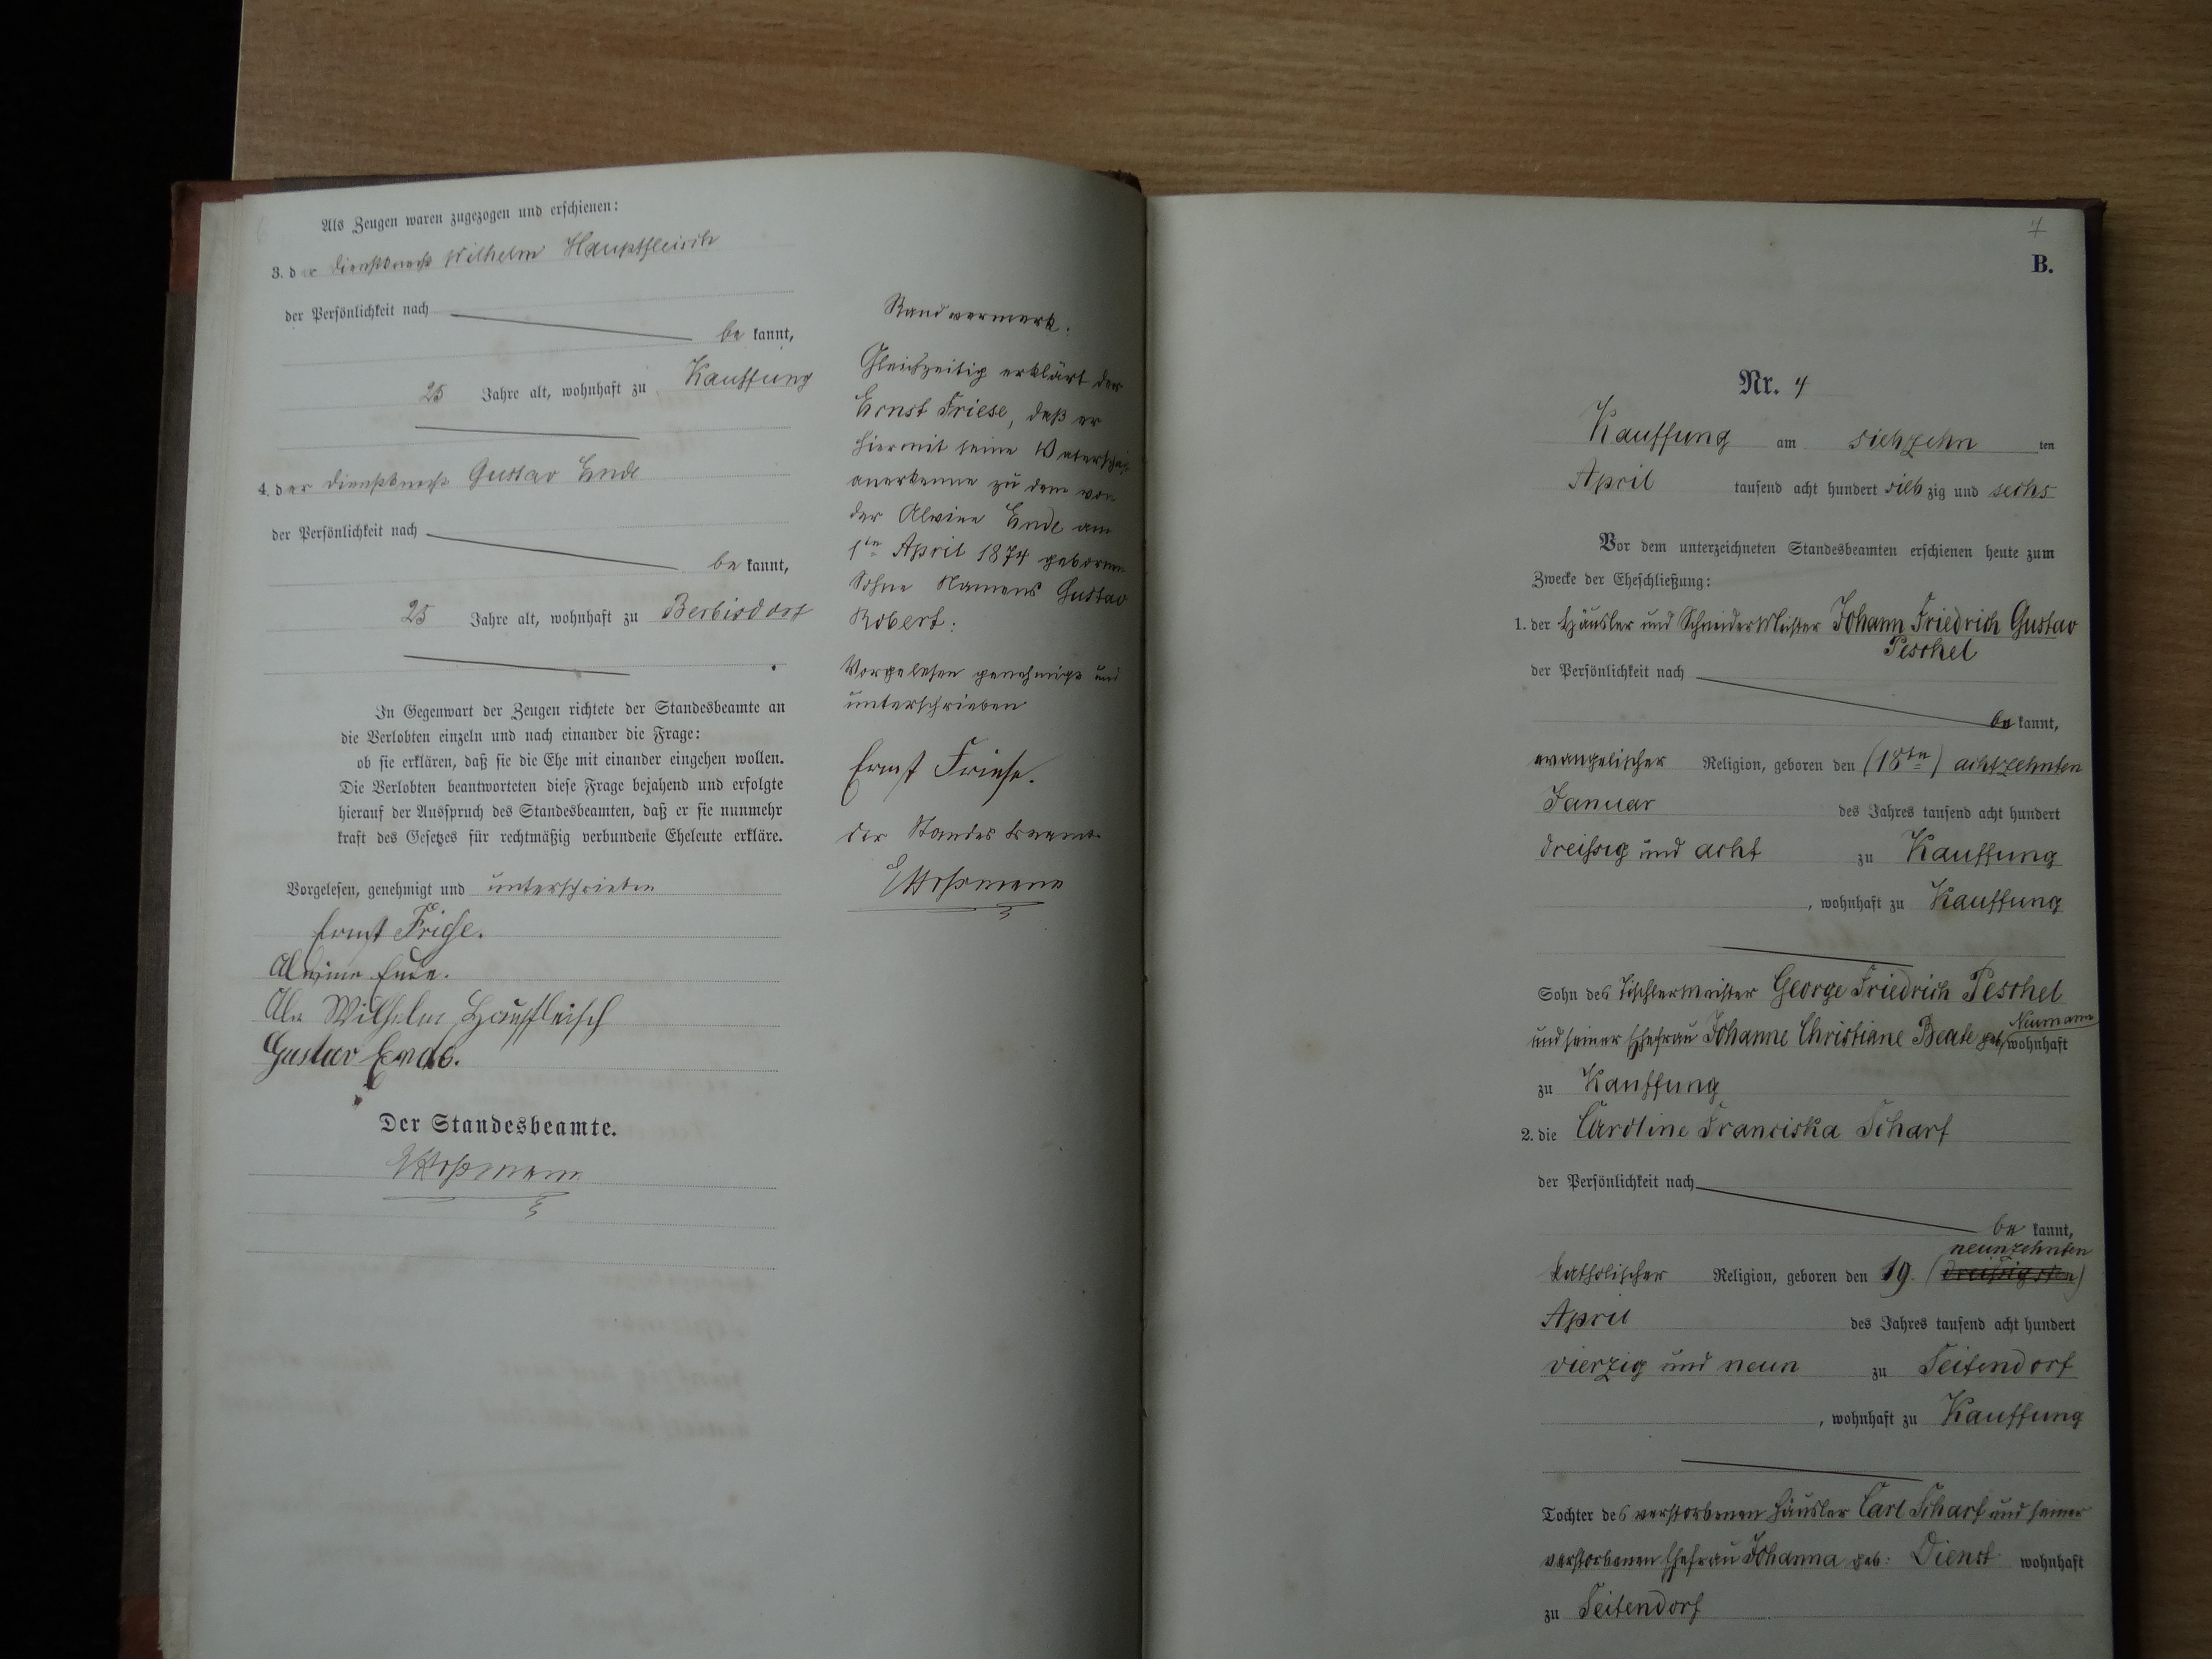 6
Als Zeugen waren zugezogen und erschienen:
3. der Dienstknecht Wilhelm Hauptfleisch
der Persönlichkeit nach
be kannt,
25 Jahre alt, wohnhaft zu Kauffung
4. der Dienstknecht Gustav Ende
der Persönlichkeit nach
be kannt,
25 Jahre alt, wohnhaft zu Berbisdorf
In Gegenwart der Zeugen richtete der Standesbeamte an
die Verlobten einzeln und nach einander die Frage:
ob sie erklären, daß sie die Ehe mit einander eingehen wollen.
Die Verlobten beantworteten diese Frage bejahend und erfolgte
hierauf der Ausspruch des Standesbeamten, daß er sie nunmehr
kraft des Gesetzes für rechtmäßig verbundene Eheleute erkläre.
Vorgelesen, genehmigt und unterschrieben
Ernst Friese.
Alwine Ende.
Wilhelm Hauptfleisch
Gustav Ende.
Der Standesbeamte.
Randvermerk.
Gleichzeitig erklärt der
Ernst Friese, daß er
hiermit seine Vaterschaft
anerkenne zu dem von
der Alwine Ende am
1ten April 1874 gebornen
Sohne Namens Gustav
Robert:
Vorgelesen genehmigt und
unterschrieben
Ernst Friese.
der Standesbeamte
7
B.
Nr. 4
Kauffung am siebzehn ten
April tausend acht hundert sieb zig und sechs
Vor dem unterzeichneten Standesbeamten erschienen heute zum
Zwecke der Eheschließung:
1. der Häusler und SchneiderMeister Johann Friedrich Gustav
Peschel
der Persönlichkeit nach
be kannt,
evangelischer Religion, geboren den (18ten) achtzehnten
Januar des Jahres tausend acht hundert
dreißig und acht zu Kauffung
, wohnhaft zu Kauffung
Sohn des Tischlermeister George Friedrich Peschel
und seiner Ehefrau Johanne Christiane Beate geb. Neumann wohnhaft
zu Kauffung
2. die Caroline Franciska Scharf
der Persönlichkeit nach
be kannt,
neunzehnten
katholischer Religion, geboren den 19. (dreißigsten)
April des Jahres tausend acht hundert
vierzig und neun zu Seitendorf
, wohnhaft zu Kauffung
Tochter des verstorbenen Häusler Carl Scharf und seiner
verstorbenen Ehefrau Johanna geb: Dienst wohnhaft
zu Seitendorf